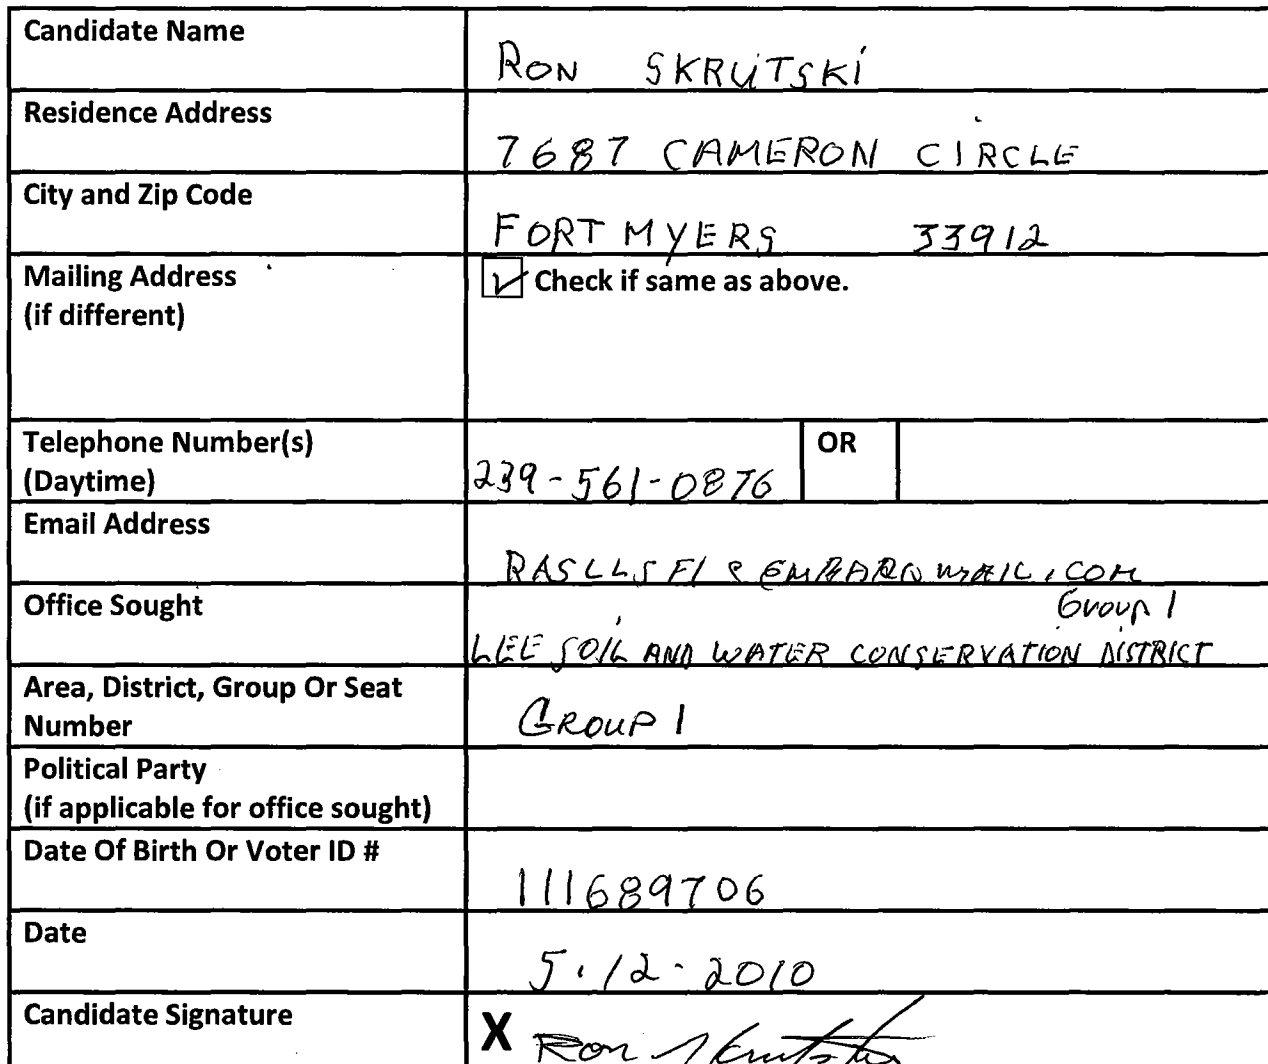 Candidate Name RON SKRUTSKI
Residence Address 7687 CAMERON CIRCLE
City and Zip Code FORT MYERS 33912
Mailing Address ☑ Check if same as above.
(if different)
Telephone Number(s) OR
(Daytime) 239-561-0876
Email Address
RASLLSFl@EMBARQMAIL.COM
Office Sought Group 1
LEE SOIL AND WATER CONSERVATION DISTRICT
Area, District, Group Or Seat
Number GROUP 1
Political Party
(if applicable for office sought)
Date Of Birth Or Voter ID # 111689706
Date 5.12.2010
Candidate Signature X Ron Skrutski